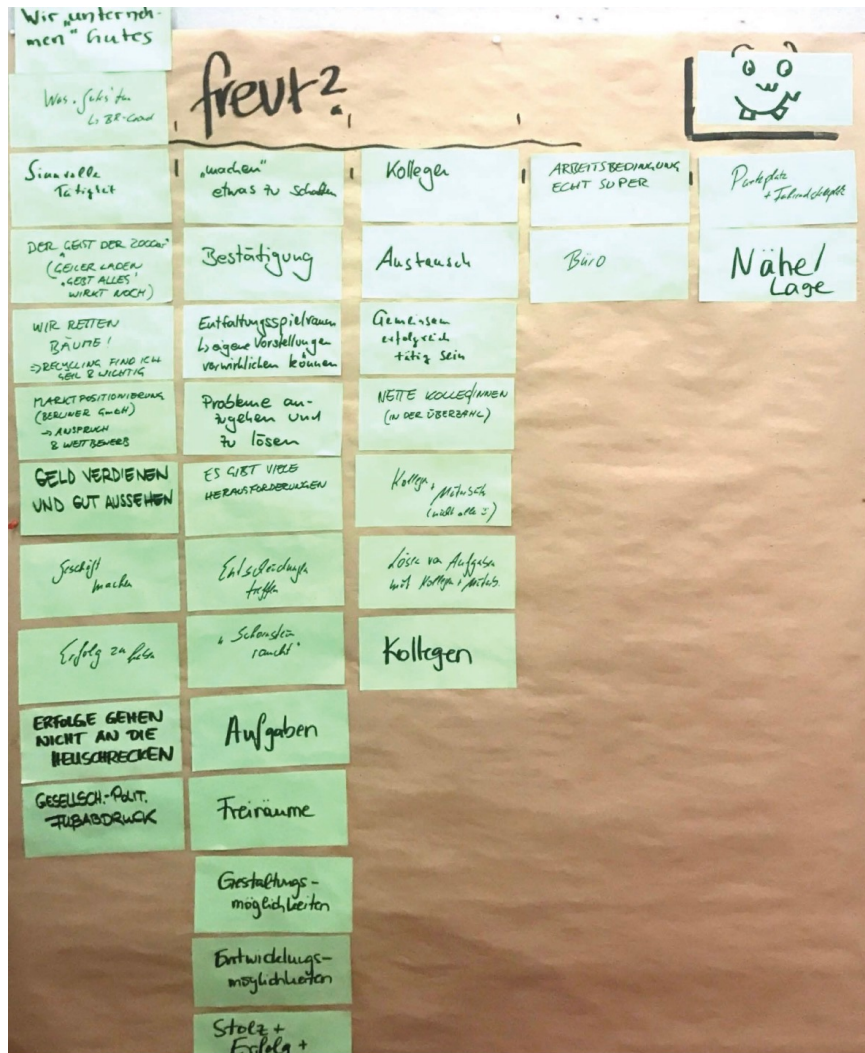 Wir „unterneh-
men" Gutes
freut?
Was
Sinnvolle
Tätigkeit
DER GEIST DER
(GEILER LADEN
„GEBT ALLES"
WIRKT NOCH)
WIR RETTEN
BÄUME!
⇒ RECYCLING FIND ICH
GEIL & WICHTIG
MARKTPOSITIONIERUNG
(BERLINER GmbH)
→ ANSPRUCH
& WETTBEWERB
GELD VERDIENEN
UND GUT AUSSEHEN
Geschäft
machen
Erfolg zu haben
ERFOLGE GEHEN
NICHT AN DIE
HEUSCHRECKEN
GESELLSCH.-POLIT.
FUßABDRUCK
„machen"
etwas zu schaffen
Bestätigung
Entfaltungsspielraum
↳ eigene Vorstellungen
verwirklichen können
Probleme an-
zugehen und
zu lösen
ES GIBT VIELE
HERAUSFORDERUNGEN
Entscheidungen
treffen
„Schornstein
raucht"
Aufgaben
Freiräume
Gestaltungs-
möglichkeiten
Entwicklungs-
möglichkeiten
Stolz +
Erfolg +
Kollegen
Austausch
Gemeinsam
erfolgreich
tätig sein
NETTE KOLLEG/INNEN
(IN DER ÜBERZAHL)
Kollegen,
(nicht alle
Lösen von Aufgaben
mit Kollegen
Kollegen
ARBEITSBEDINGUNG
ECHT SUPER
Büro
Parkplatz
Nähe/
Lage